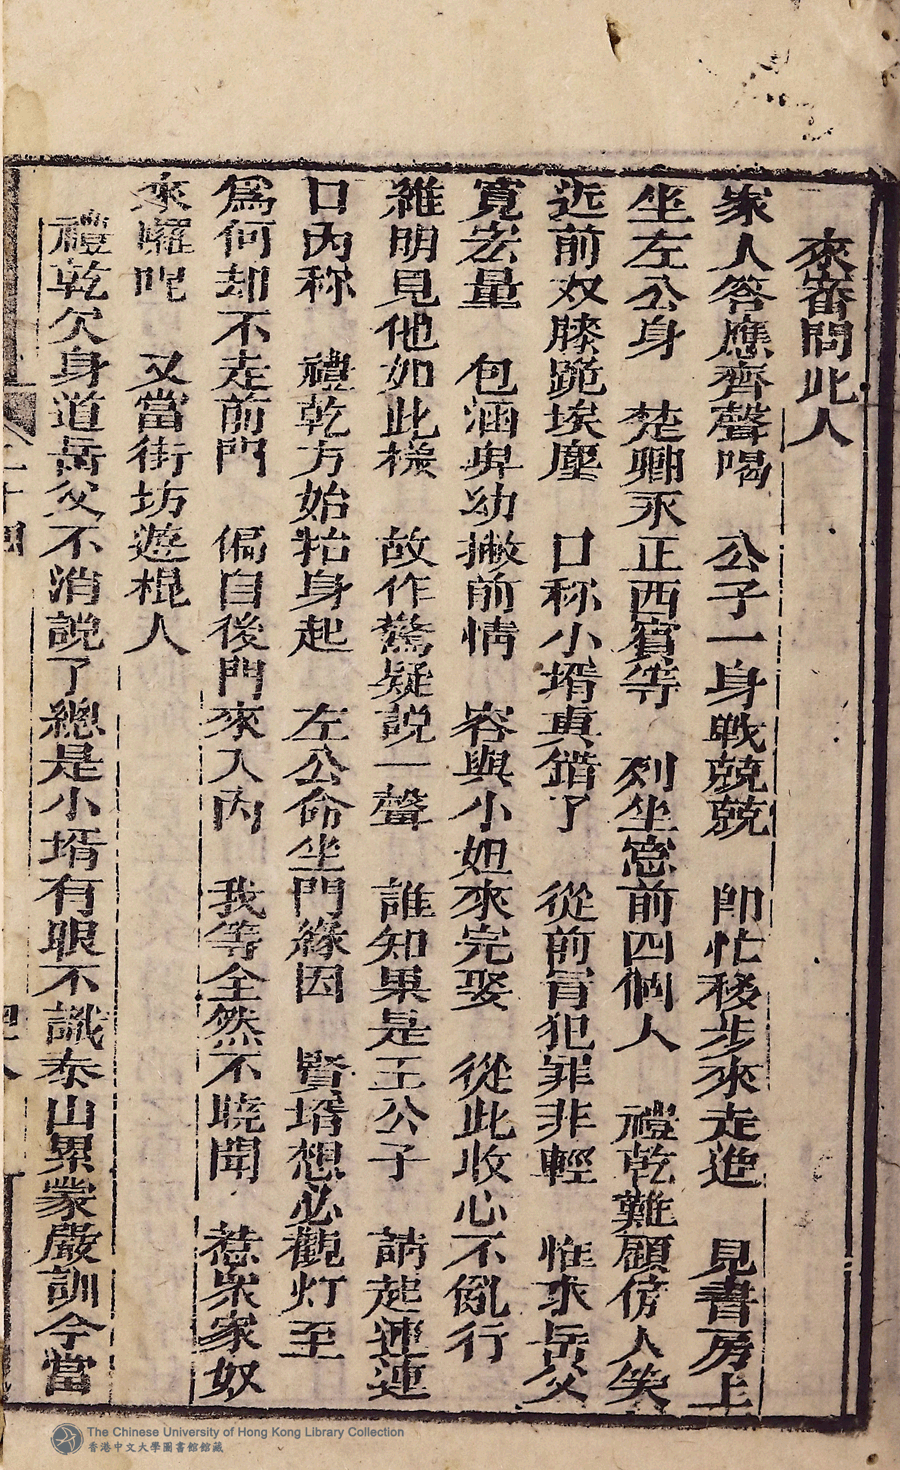 來審問此人
家人答應齊聲喝　公子一身戰兢兢　即忙移步來走進　見書房上
坐左公身　楚卿永正西賓等　列坐窓前四個人　禮乾難顧傍人笑
近前双膝跪埃塵　口称小壻真錯了　從前冐犯罪非輕　惟求岳父
寛宏量　包涵卑幼撇前情　容與小姐來完娶　從此收心不亂行
維明見他如此様　故作驚疑説一聲　誰知果是王公子　請起連連
口內称　禮乾方始抬身起　左公命坐門緣因　賢壻想必觀灯至
爲何却不走前門　偏自後門來入內　我等全然不曉聞　惹衆家奴
來囉唣　又當街坊遊棍人
禮乾欠身道岳父不消説了總是小壻有眼不識泰山累蒙嚴訓今當
二十四
The Chinese University of Hong Kong Library Collection
香港中文大學圖書館館藏